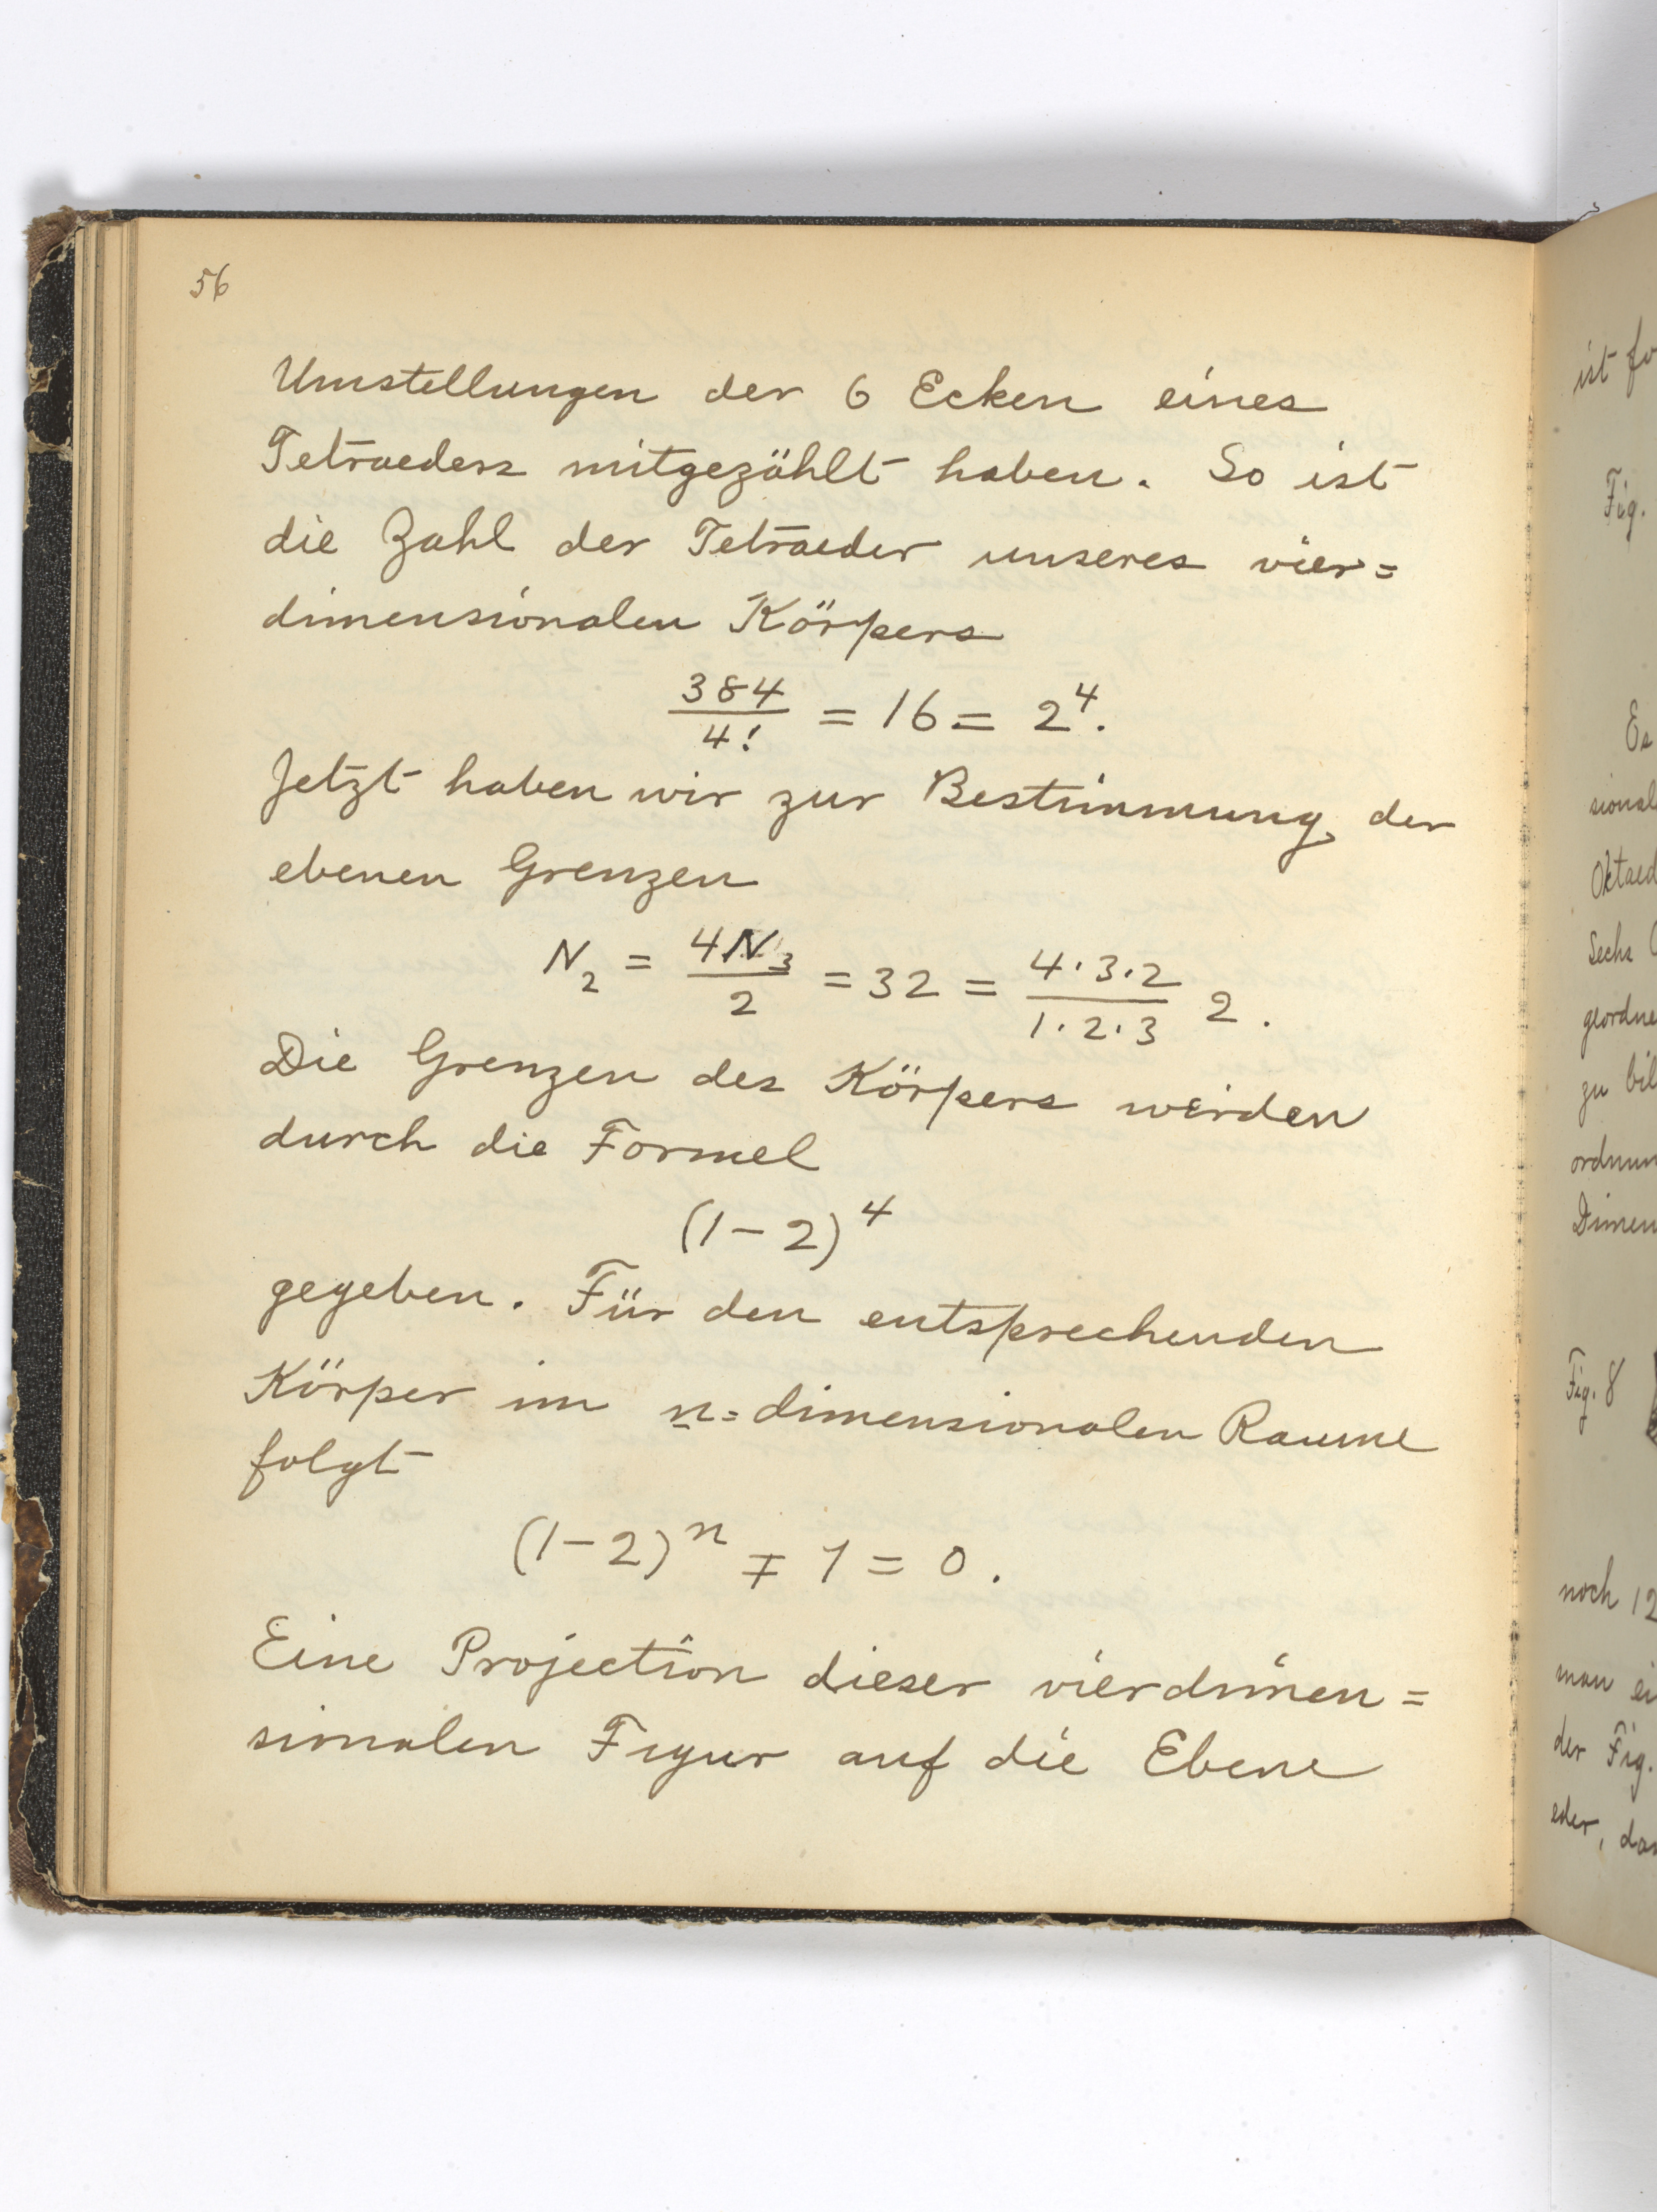 56
Umstellungen der 6 Ecken eines
Tetraeders mitgezählt haben. So ist
die Zahl der Tetraeder unseres vier=
dimensionalen Körpers
384/4! = 16 = 2⁴.
Jetzt haben wir zur Bestimmung der
ebenen Grenzen
N₂ = 4N₃/2 = 32 = 4·3·2/1·2·3 2.
Die Grenzen des Körpers werden
durch die Formel
(1-2)⁴
gegeben. Für den entsprechenden
Körper im n=dimensionalen Raume
folgt
(1-2)ⁿ ∓ 1 = 0.
Eine Projection dieser vierdimen=
sionalen Figur auf die Ebene
ist
Fig.
Es
sional
Oktaed
Sechs
geordne
zu bil
ordnun
Dimen
Fig. 8
noch 12
man ei
der Fig.
eder, das